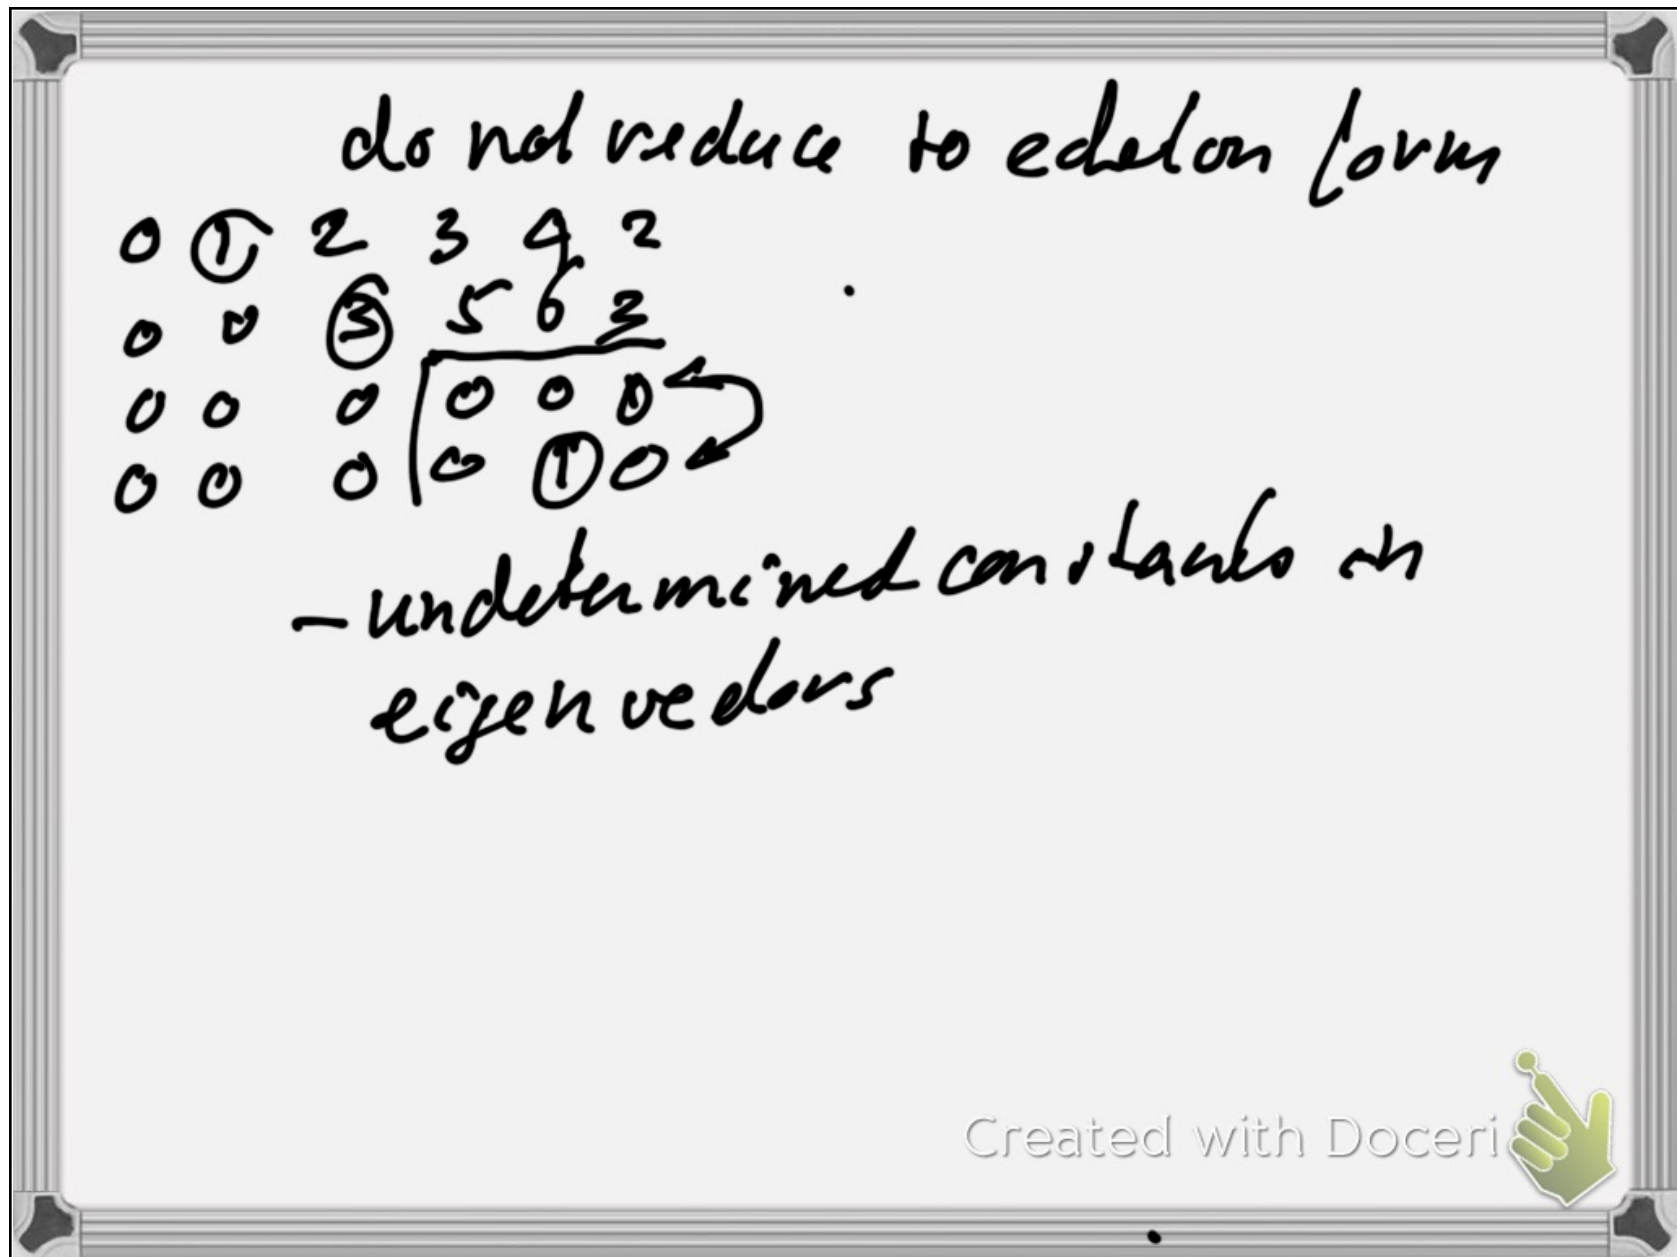 do not reduce to echelon form
0 1 2 3 4 2
0 0 3 5 6 2
0 0 0 0 0 0
0 0 0 0 1 0
- undetermined constants in
eigenvectors
Created with Doceri